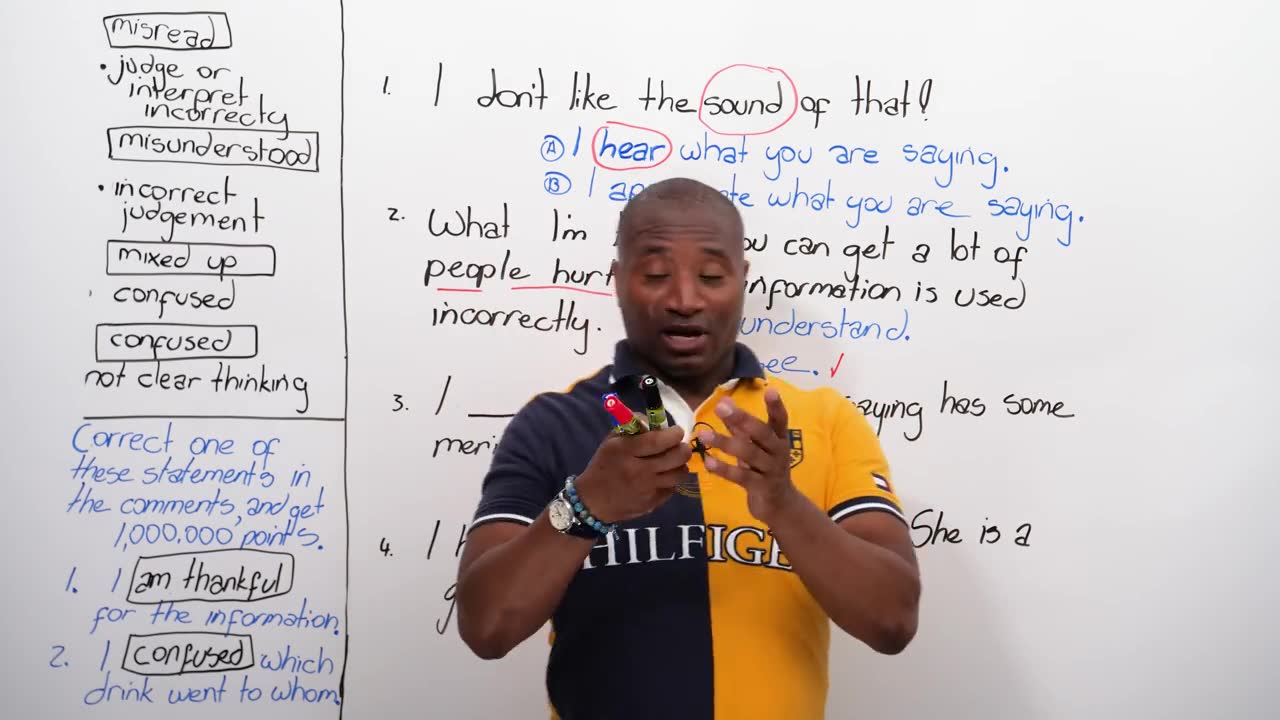 misread
• judge or
interpret
incorrecty
misunderstood
• incorrect
judgement
mixed up
confused
confused
not clear thinking
Correct one of
these statements in
the comments, and get
1,000,000 points.
1. I am thankful
for the information.
2. I confused which
drink went to whom.
1. I don't like the sound of that!
Ⓐ I hear what you are saying.
Ⓑ I what you are saying.
2. What I'm can get a lot of
people hurt information is used
incorrectly. understand.
✓
3. I ___ saying has some
4. I She is a
HILFIGE